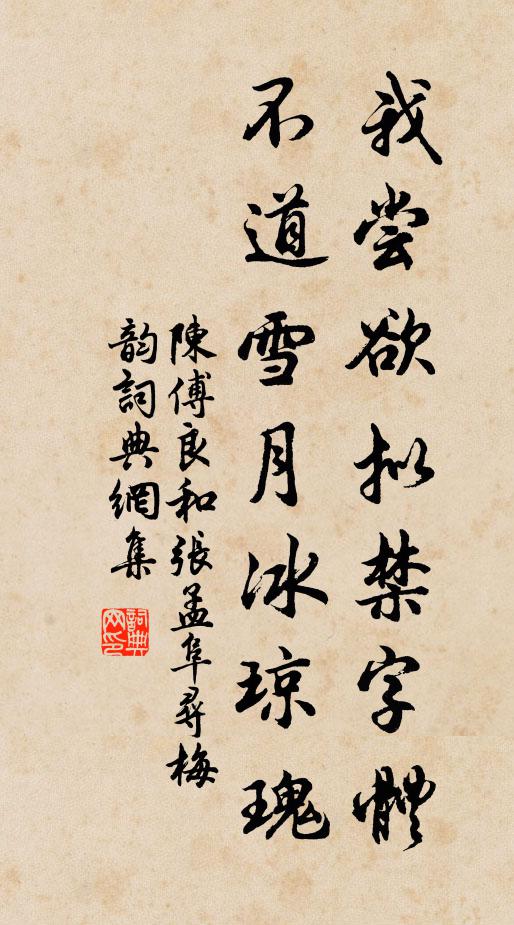 我尝欲拟禁字體
不道雪月冰琼瑰
陳傅良和張孟阜尋梅
韵詞典網集
詞典网印